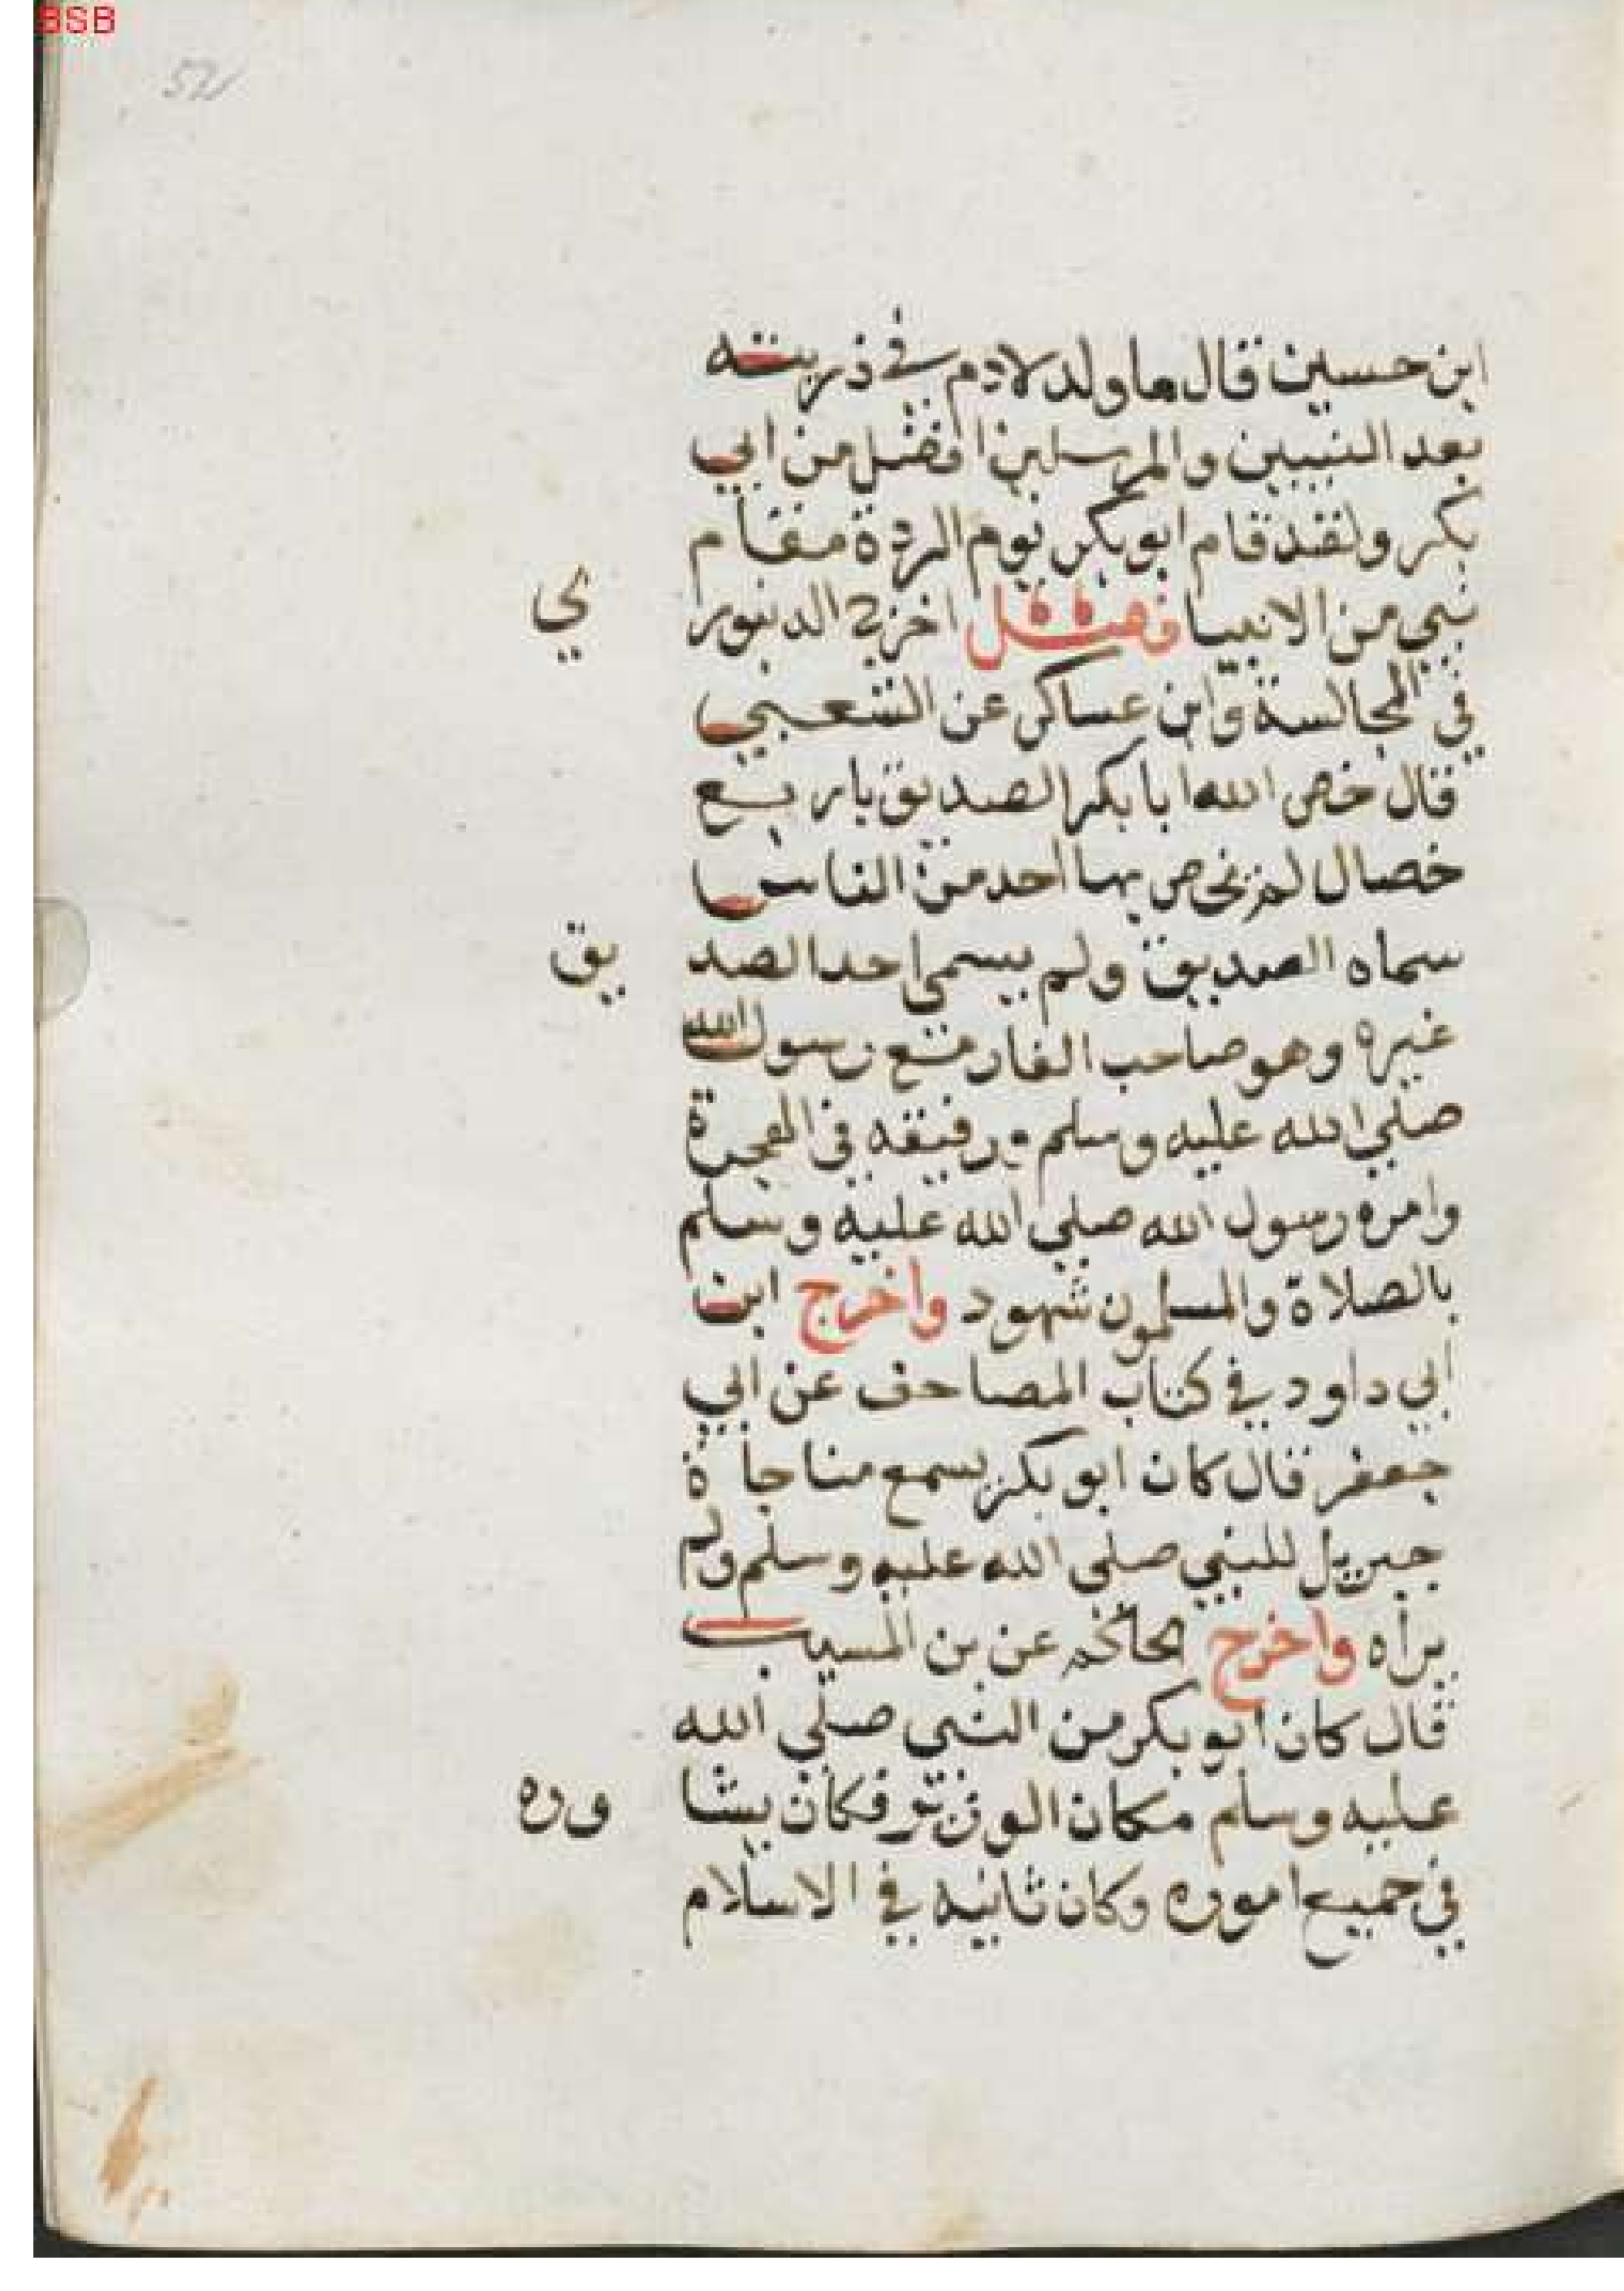 BSB
52
ابن حسين قال ما ولد لادم في ذريته
بعد النبيين والمرسلين افضل من ابي
بكر ولقد قام ابو بكر يوم الردة مقام
نبي من الانبيا فصل اخرج الدينور ي
في المجالسة وابن عساكر عن الشعبي
قال خص الله ابا بكر الصديق بار بع
خصال لم يخص بها احد من الناس
سماه الصديق ولم يسمي احدا الصد يق
غيره وهو صاحب الغار مع رسول الله
صلي الله عليه وسلم ورفيقه في الهجرة
وامره رسول الله صلي الله عليه وسلم
بالصلاة والمسلمون شهود واخرج ابن
ابي داود في كتاب المصاحف عن ابي
جعفر قال كان ابو بكر يسمع مناجا ة
جبريل للنبي صلي الله عليه وسلم ولم
يراه واخرج الحاكم عن بن المسيب
قال كان ابو بكر من النبي صلي الله
عليه وسلم مكان الوزير فكان يشا وره
في جميع اموره وكان ثانيه في الاسلام